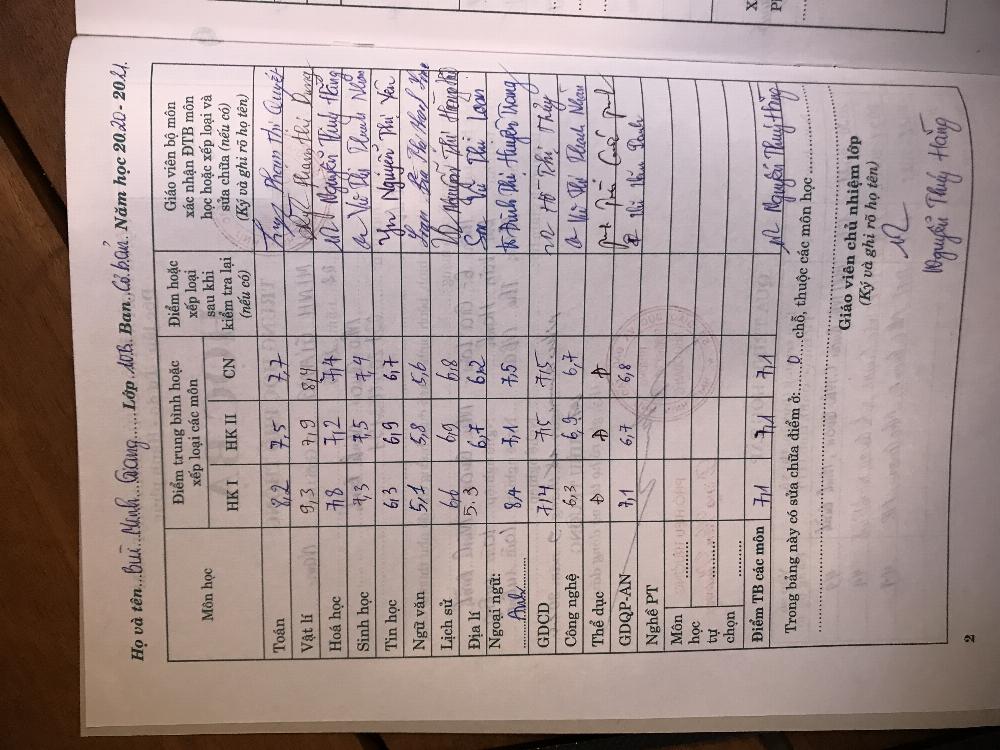 Họ và tên...Bùi Minh Giang......Lớp 10B. Ban..Cơ bản. Năm học 2020 - 2021.
Môn học
Điểm trung bình hoặc
xếp loại các môn
HK I HK II CN
Điểm hoặc
xếp loại
sau khi
kiểm tra lại
(nếu có)
Giáo viên bộ môn
xác nhận ĐTB môn
học hoặc xếp loại và
sửa chữa (nếu có)
(Ký và ghi rõ họ tên)
Toán 8,2 7,5 7,7 Phạm Thị Quyết
Vật lí 9,3 7,9 8,4 Phạm Thị Dung
Hoá học 7,8 7,2 7,4 Nguyễn Thuý Hằng
Sinh học 7,3 7,5 7,4 Vũ Thị Thanh Nhàn
Tin học 6,3 6,9 6,7 Yến Nguyễn Thị Yến
Ngữ văn 5,1 5,8 5,6
Lịch sử 6,6 6,9 6,8 Nguyễn Thị Hồng
Địa lí 5.3 6,7 6,2 Thị Loan
Ngoại ngữ: 8,4 7,1 7,5 Đinh Thị Huyền Trang
Anh
GDCD 7,4 7,5 7,5 Hồ Thị Thủy
Công nghệ 6,3 6,9 6,7 Vũ Thị Thanh Nhàn
Thể dục Đ Đ Đ
GDQP-AN 7,1 6,7 6,8
Nghề PT
Môn
học
tự
chọn
Điểm TB các môn 7,1 7,1 7,1 Nguyễn Thuý Hằng
Trong bảng này có sửa chữa điểm ở:......0......chỗ, thuộc các môn học
Giáo viên chủ nhiệm lớp
(Ký và ghi rõ họ tên)
Nguyễn Thuý Hằng
2